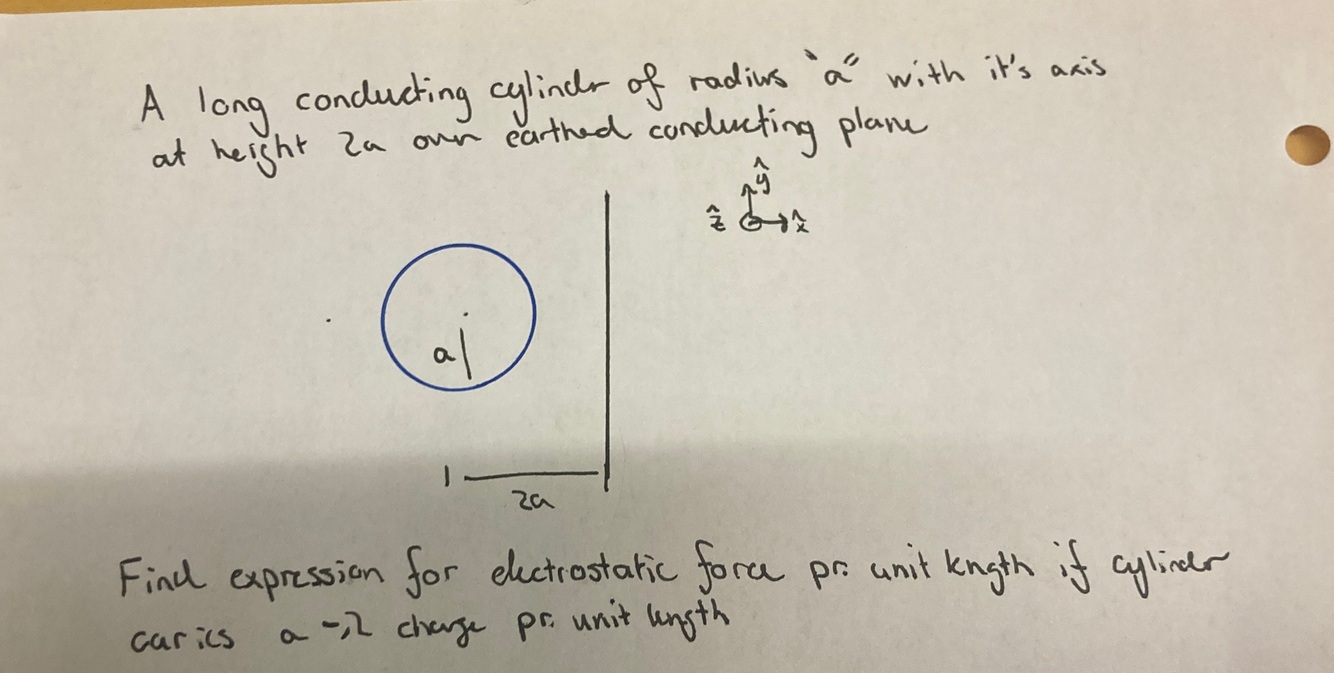 A long conducting cylinder of radius "a" with it's axis
at height 2a over earthed conducting plane
ŷ
ẑ x̂
a
2a
Find expression for electrostatic force pr. unit length if cylinder
caries a -λ charge pr. unit length